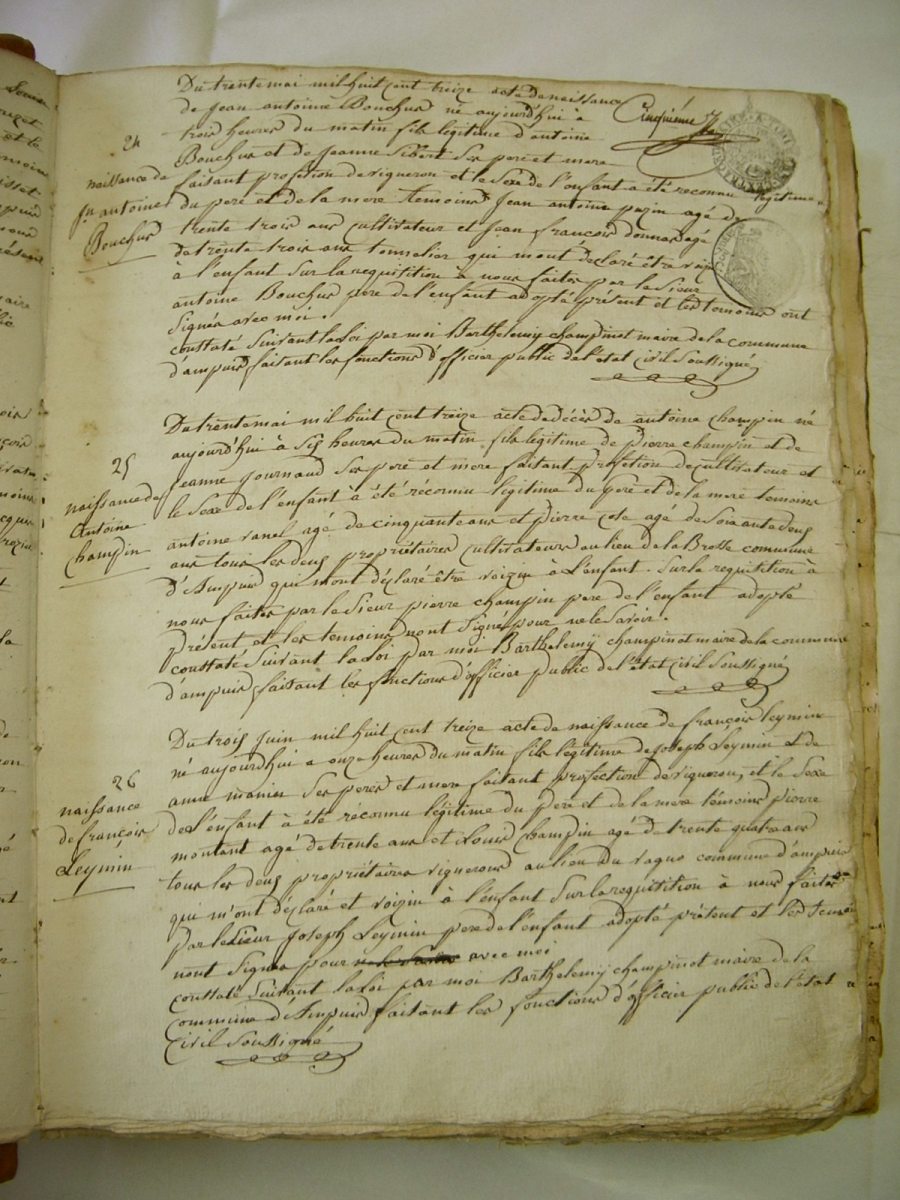 Cinquième
24
naissance de
Jn antoine
Bouchus
Du trente mai mil huit cent treize acte de naissance
de Jean antoine Bouchus né aujourd'hui à
trois heures du matin fils légitime d'antoine
Bouchus et de Jeanne Sibert Ses pere et mere
faisant profetion de vigneron et le Sexe de l'enfant a été reconnu légitime
du pere et de la mere temoins Jean antoine agé de
trente trois ans cultivateur et Jean françois donnar agé
de trente trois ans tonnelier qui mont déclaré être voizin
à l'enfant Sur la requitition à nous faites par le Sieur
antoine Bouchus pere de l'enfant adopté présent et les temoins ont
Signés avec moi.
conttaté Suivant la loi par moi Barthelemy champinot maire de la commune
d'ampuis faitant les fonctions d'officier public de l'état civil Soussigné
25
naissance de
Antoine
champin
Du trente mai mil huit cent treize acte de décès de antoine champin né
aujourd'hui à Six heures du matin fils légitime de pierre champin et de
Jeanne journoud Ses pere et mere faitant profetion de cultivateur et
le Sexe de l'enfant à été réconnu légitime du pere et de la mere temoins
antoine vanel agé de cinquante ans et pierre cote agé de Soixante deux
ans tous les deux propriétaires cultivateurs au lieu de la Brosse commune
D'Ampuis qui m'ont déclaré être voizin à L'enfant. Sur la requitition à
nous faites par le Sieur pierre champin pere de l'enfant adopté
présent et les temoins nont Signé pour ne le Savoir.
conttaté Suivant la loi par moi Barthelemy champinot maire de la commune
d'ampuis faitant les fonctions d'officier public de l'état civil Soussigné
26
naissance
de françois
Leymin
Du trois juin mil huit cent treize acte de naissance de françois leymin
né aujourd'hui a onze heures du matin fils légitime de Joseph Leymin et de
anne manin Ses peres et mere faitant profection de vigneron, et le Sexe
de l'enfant à été réconnu légitime du pere et de la mere témoins pierre
montant agé de trente ans et Louis Champin agé de trente quatre ans
tous les deux propriétaires vignerons au lieu du vagno commune d'ampuis
qui m'ont déclaré et voizin à l'enfant Sur la requitition à nous faites
par le Sieur Joseph Leymin pere de l'enfant adopté prétent et les temoins
nont Signés pour avec moi
conttaté Suivant la loi par moi Barthelemy champinot maire de la
commune d'Ampuis faitant les fonctions d'officier public de l'état
Civil Soussigné